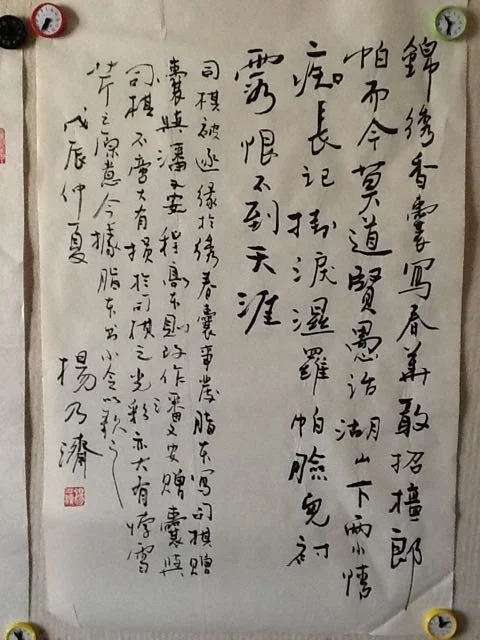 錦綉香囊寫春華敢招檀郎
帕而今莫道賢愚湖山下兩小情
痴長記淚濕羅帕臉兒
恨不到天涯
司棋被逐缘於绣春囊事發脂本寫司棋贈
囊與潘又安程高本則改作潘又安贈囊與
司棋不啻大有损於司棋之光彩亦大有悖雪
芹之原意今據脂本出小令以歎之
戊辰仲夏
楊乃濟